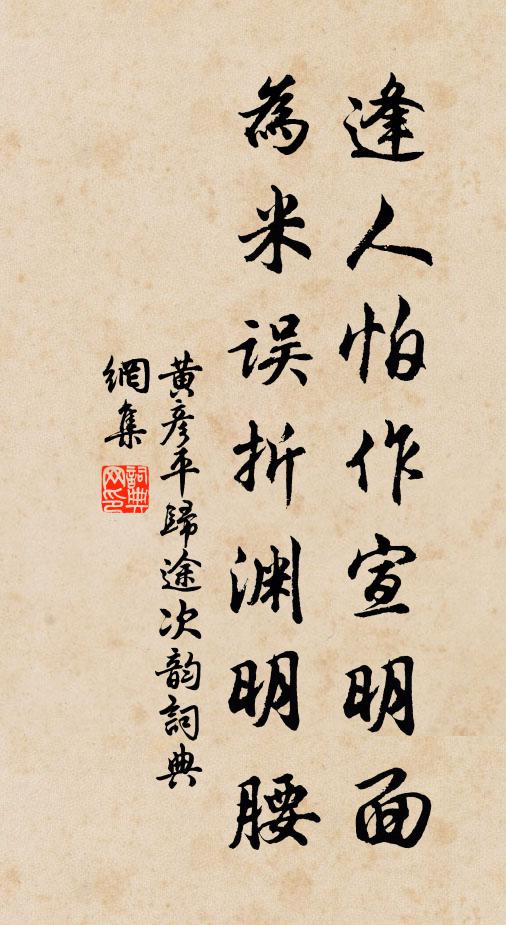 逢人怕作宣明面
為米误折渊明腰
黄彥平歸途次韵詞典
網集
詞典
网印